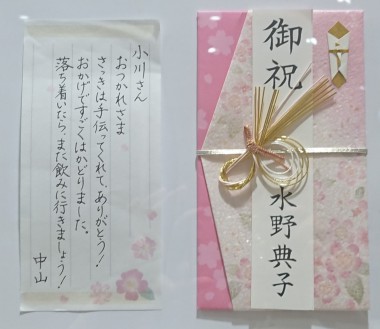 小川さん
おつかれさま
さっきは手伝ってくれて、ありがとう!
おかげですごくはかどりました。
落ち着いたら、また飲みに行きましょう!
中山
御祝
水野典子